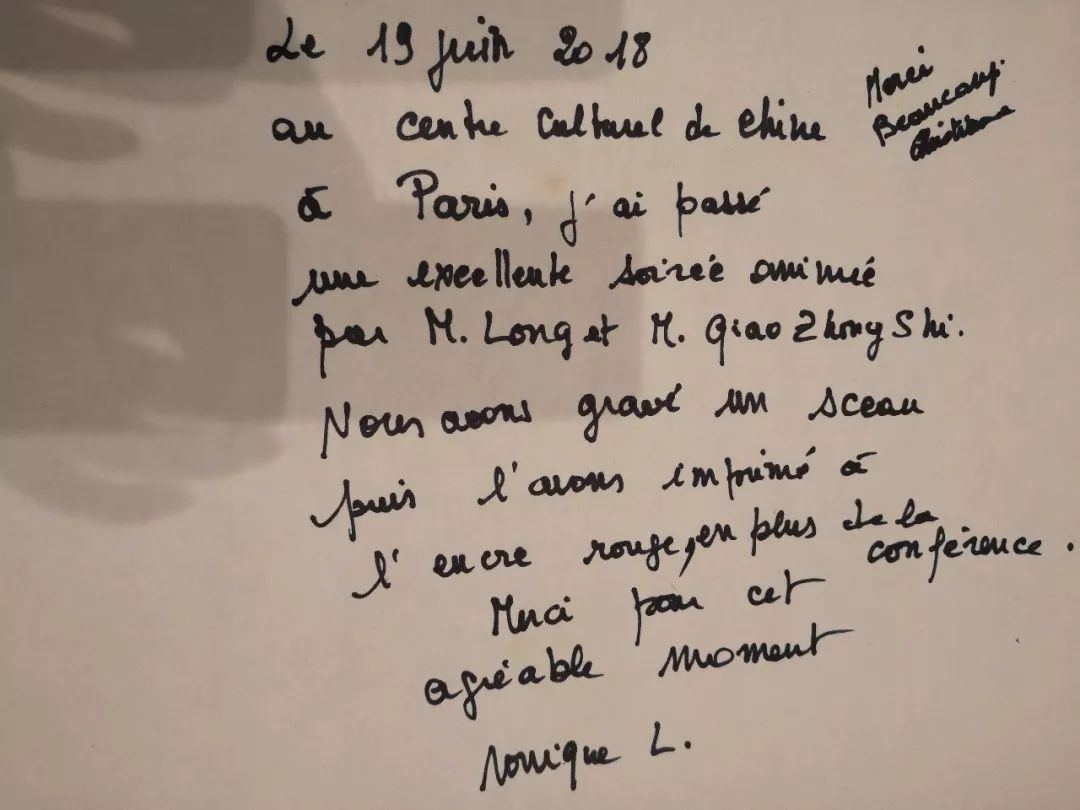 Le 19 juin 2018
au centre Culturel de Chine
à Paris, j'ai passé
une excellente soirée animée
par M. Long et M. Qiao Zhong Shi.
Nous avons gravé un sceau
puis l'avons imprimé à
l'encre rouge, en plus de la
conférence.
Merci pour cet
agréable moment
Monique L.
Merci
Beaucoup.